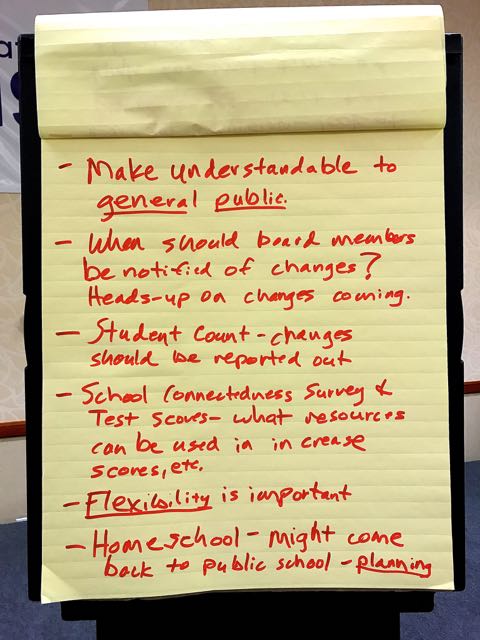 - Make understandable to
general public.
- When should board members
be notified of changes?
Heads-up on changes coming.
- Student Count - changes
should be reported out
- School Connectedness Survey &
Test scores - what resources
can be used in in crease
scores, etc.
- Flexibility is important
- Homeschool - might come
back to public school - planning